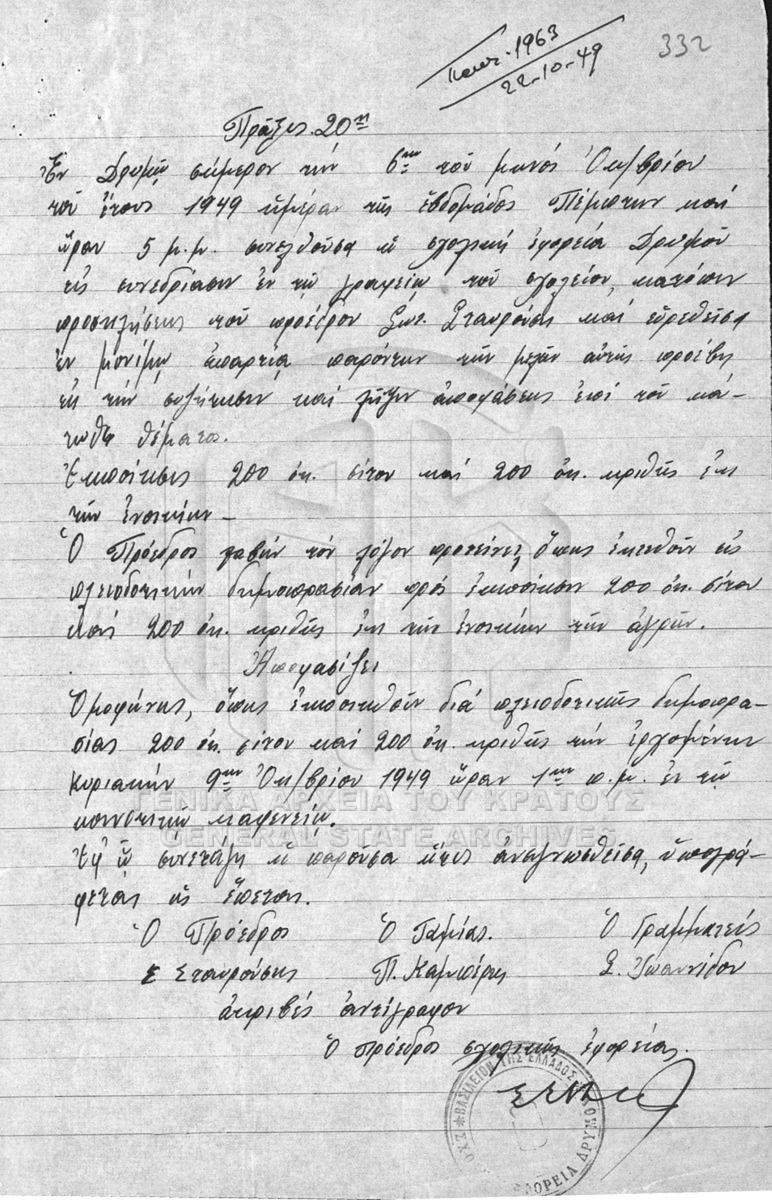 Κοιν. 1963
22-10-49
332
Πρᾶξις 20η
Ἐν Δρυμῷ σήμερον τήν 6ην τοῦ μηνός Ὀκ/βρίου
τοῦ ἔτους 1949 ἡμέραν τῆς ἑβδομάδος Πέμπτην καί
ὥραν 5 μ.μ. συνελθοῦσα ἡ σχολική ἐφορεία Δρυμοῦ
εἰς συνεδρίασιν ἐν τῷ γραφείῳ τοῦ σχολείου, κατόπιν
προσκλήσεως τοῦ προέδρου Σωτ. Σταυρούση καί εὑρεθεῖσα
ἐν μονίμῳ ἀπαρτίᾳ παρόντων τῶν μελῶν αὐτῆς προέβη
εἰς τήν συζήτησιν καί λῆψιν ἀποφάσεως ἐπί τοῦ κά-
τωθι θέματος.
Ἐκποίησις 200 ὀκ. σίτου καί 200 ὀκ. κριθῆς ἐκ
τῶν ἐνοικίων -
Ὁ Πρόεδρος λαβών τόν λόγον προτείνει, ὅπως ἐκτεθοῦν εἰς
πλειοδοτικήν δημοπρασίαν πρός ἐκποίησιν 200 ὀκ. σίτου
καί 200 ὀκ. κριθῆς ἐκ τῶν ἐνοικίων τῶν ἀγρῶν.
Ἀποφασίζει
Ὁμοφώνως, ὅπως ἐκποιηθοῦν διά πλειοδοτικῆς δημοπρα-
σίας 200 ὀκ. σίτου καί 200 ὀκ. κριθῆς τήν ἐρχομένην
Κυριακήν 9ην Ὀκ/βρίου 1949 ὥραν 1ην π.μ. ἐν τῷ
κοινοτικῷ καφενείῳ.
Ἐφ' ᾧ συνετάγη ἡ παροῦσα ἥτις ἀναγνωσθεῖσα, ὑπογρά-
φεται ὡς ἕπεται.
Ὁ Πρόεδρος Ὁ Ταμίας. Ὁ Γραμματεύς
Σ Σταυρούσης Π. Καμπέρης Σ. Ἰωαννίδου
ἀκριβές ἀντίγραφον
Ὁ πρόεδρος σχολικῆς ἐφορείας.
ΒΑΣΙΛΕΙΟΝ ΤΗΣ ΕΛΛΑΔΟΣ
ΕΦΟΡΕΙΑ ΔΡΥΜΟΥ
ΓΕΝΙΚΑ ΑΡΧΕΙΑ ΤΟΥ ΚΡΑΤΟΥΣ
GENERAL STATE ARCHIVES